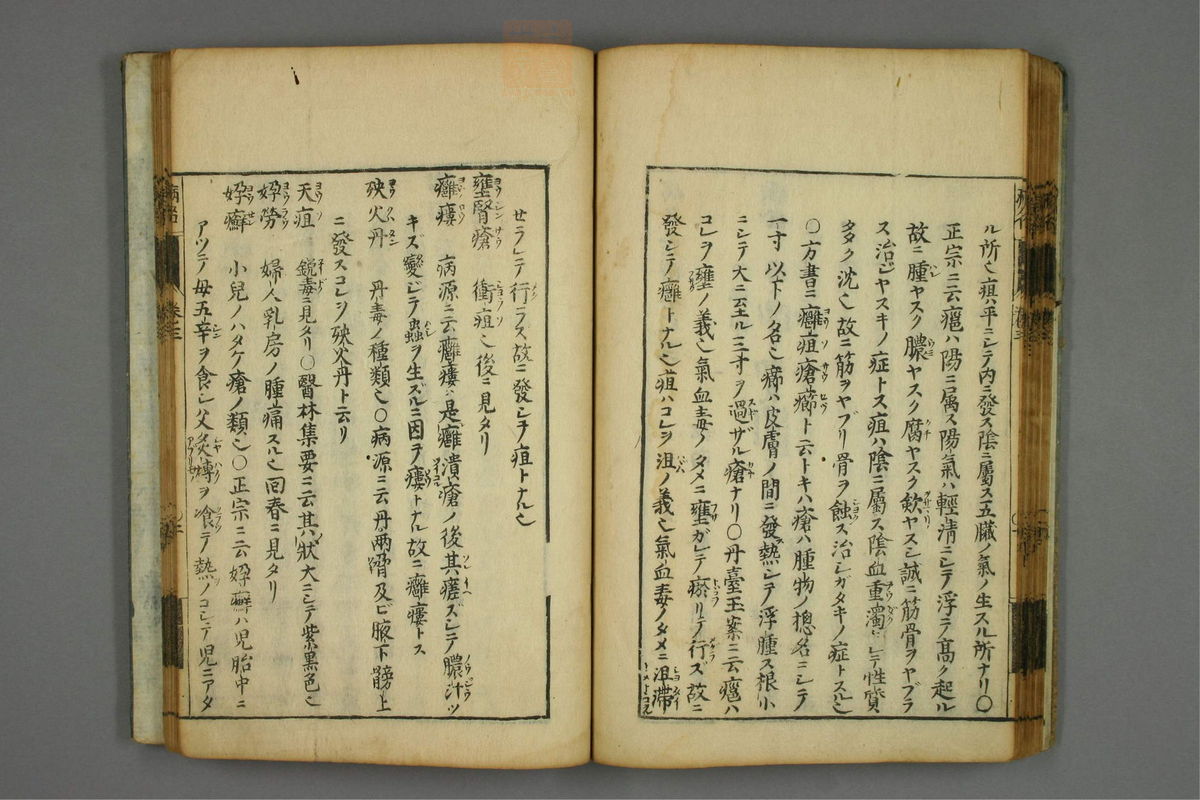 ル所也疽ハ平ニシテ内ニ發ス陰ニ屬ス五臓ノ氣ノ生スル所ナリ〇
正宗ニ云癰ハ陽ニ属ス陽氣ハ輕清ニシテ浮テ高ク起ル
故ニ腫ヤスク膿ヤスク腐ヤスク歛ヤスシ誠ニ筋骨ヲヤブラ
ス治シヤスキノ症トス疽ハ陰ニ屬ス陰血重濁ニシテ性質
多ク沈也故ニ筋ヲヤブリ骨ヲ蝕ス治シガタキノ症トスル也
〇方書ニ癰疽瘡癤ト云トキハ瘡ハ腫物ノ摠名ニシテ
一寸以下ノ名也癤ハ皮膚ノ間ニ發熱シテ浮腫ス根小
ニシテ大ニ二三寸ヲ過ザル瘡ナリ〇丹臺玉案ニ云癰ハ
コレヲ壅ノ義也氣血毒ノタメニ壅ガレテ瘀リテ行ズ故ニ
發シテ癰トナル也疽ハコレヲ沮ノ義也氣血毒ノタメニ沮滯
セラレテ行ラス故ニ發シテ疽トナル也
壅腎瘡 衝疽也後ニ見タリ
癰瘻 病源ニ云癰瘻ハ是癰潰瘡ノ後其瘥ズシテ膿汁ツ
キズ變ジテ蟲ヲ生ズルニ因ヲ瘻トナル故ニ癰瘻トス
殃火丹 丹毒ノ種類也〇病源ニ云丹兩脅及ビ腋下髈上
ニ發スコレヲ殃火丹ト云リ
夭疽 鋭毒ニ見タリ〇醫林集要ニ云其狀大ニシテ紫黒色也
㚸勞 婦人乳房ノ腫痛スル也回春ニ見タリ
㚸癬 小兒ノハタケ瘡ノ類也〇正宗ニ云㚸癬ハ児胎中ニ
アツテ母五辛ヲ食シ父炙煿ヲ飡テ熱ノコシテ児ニアタ
卷之三